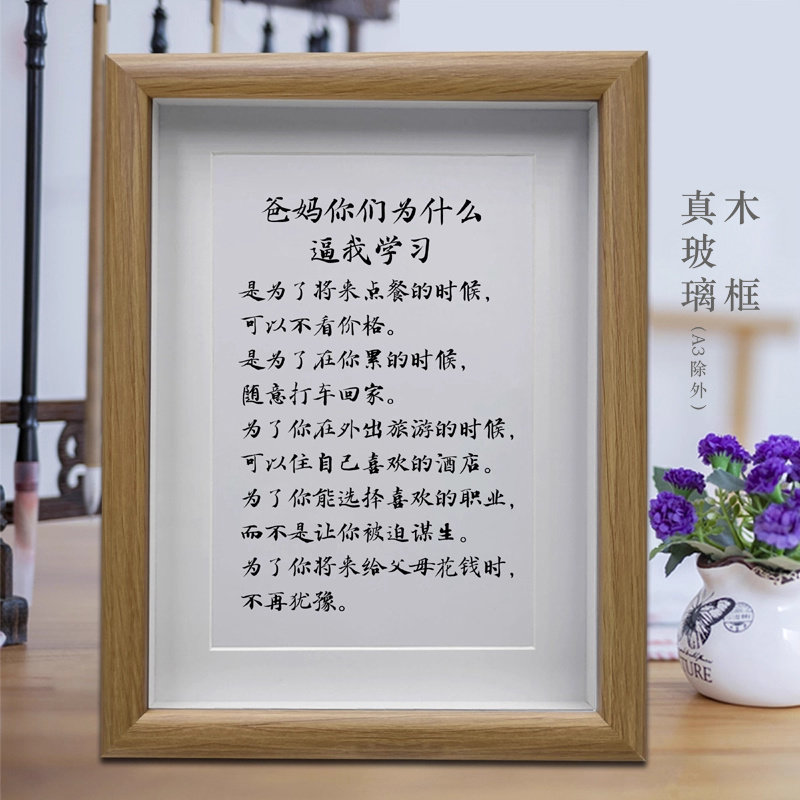 爸妈你们为什么
逼我学习
是为了将来点餐的时候，
可以不看价格。
是为了在你累的时候，
随意打车回家。
为了你在外出旅游的时候，
可以住自己喜欢的酒店。
为了你能选择喜欢的职业，
而不是让你被迫谋生。
为了你将来给父母花钱时，
不再犹豫。
木框
真玻璃(A3除外)